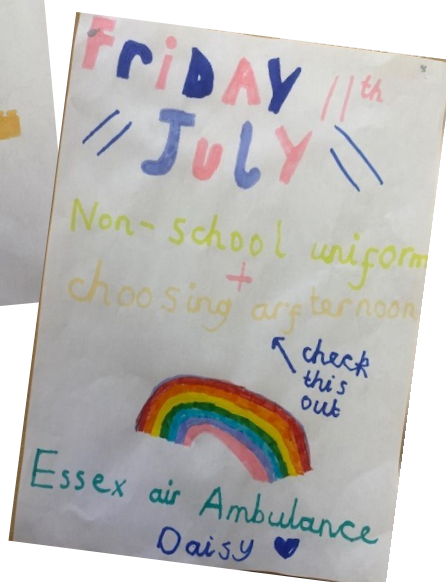 FriDAY 11th
JulY
Non-school uniform
+
choosing arfternoon
check
this
out
Essex air Ambulance
Daisy